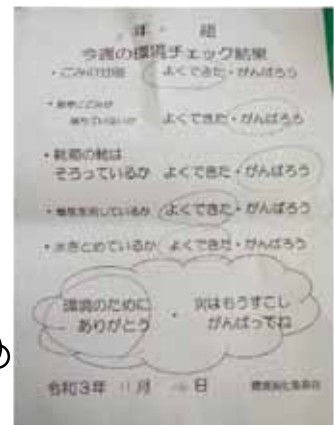 年 組
今週の環境チェック結果
・ごみの分別 よくできた・がんばろう
・教室にごみが
落ちていないか よくできた・がんばろう
・靴箱の靴は
そろっているか よくできた・がんばろう
・電気を消しているか よくできた・がんばろう
・水をとめているか よくできた・がんばろう
環境のために
ありがとう
・
次はもうすこし
がんばってね
令和3年 11月 日